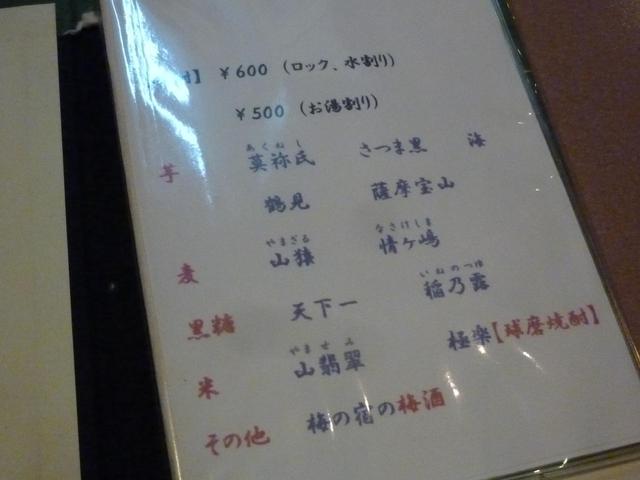 】 ￥600 (ロック、水割り)
￥500 (お湯割り)
あくねし
芋 莫祢氏 さつま黒 海
鶴見 薩摩宝山
やまざる なさけしま
麦 山猿 情ヶ嶋
いねのつゆ
黒糖 天下一 稲乃露
やませみ
米 山翡翠 極楽【球磨焼酎】
その他 梅の宿の梅酒